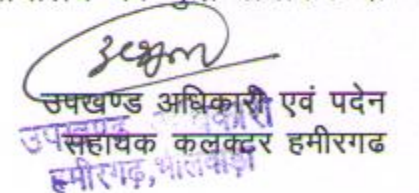 उपखण्ड अधिकारी एवं पदेन
सहायक कलक्टर हमीरगढ
उपखण्ड
हमीरगढ़, भीलवाड़ा